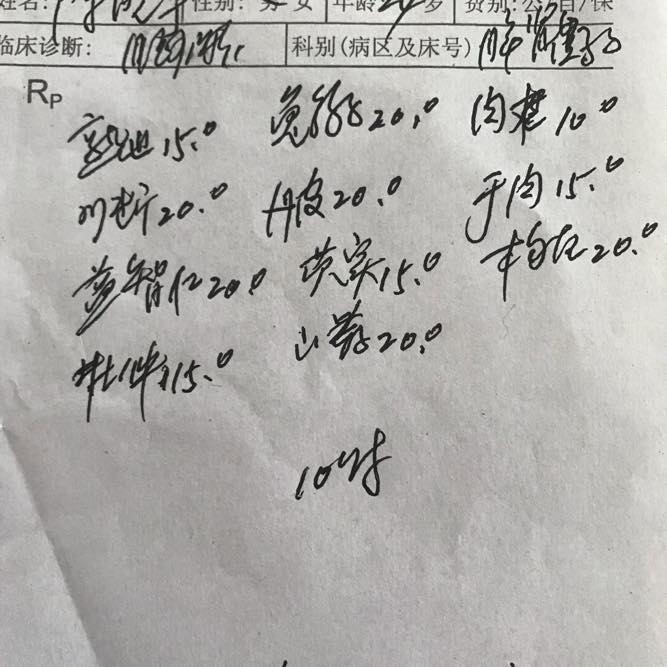 姓名: 性别: 男 女 年龄 24 岁 费别:公 自/保
临床诊断: 科别(病区及床号)
Rp
熟地15.0 菟丝子20.0 肉桂10.0
川断20.0 丹皮20.0 于肉15.0
益智仁20.0 芡实15.0 枸杞20.0
杜仲15.0 山药20.0
10付